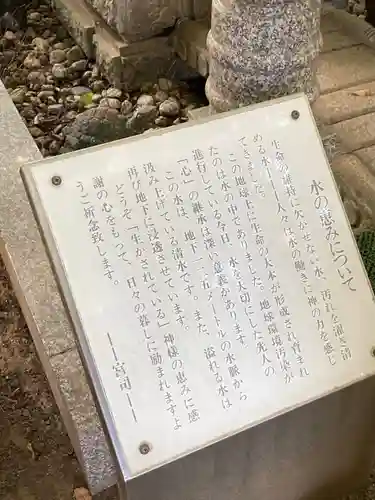 水の恵みについて
生命の維持に欠かせない水、汚れを濯ぎ清
める水――人々は水の働きに神の力を感じ
てきました。
この地球上に生命の大本が形成され育まれ
たのは水の中でありました。地球環境汚染が
進行している今日、水を大切にした先人の
「心」の継承は深い意義があります
この水は、地下一二五メートルの水脈から
汲み上げている清水です。また、溢れる水は
再び地下に浸透させています。
どうぞ「生かされている」神様の恵みに感
謝の心をもって、日々の暮しに励まれますよ
うご祈念致します。
――宮司――